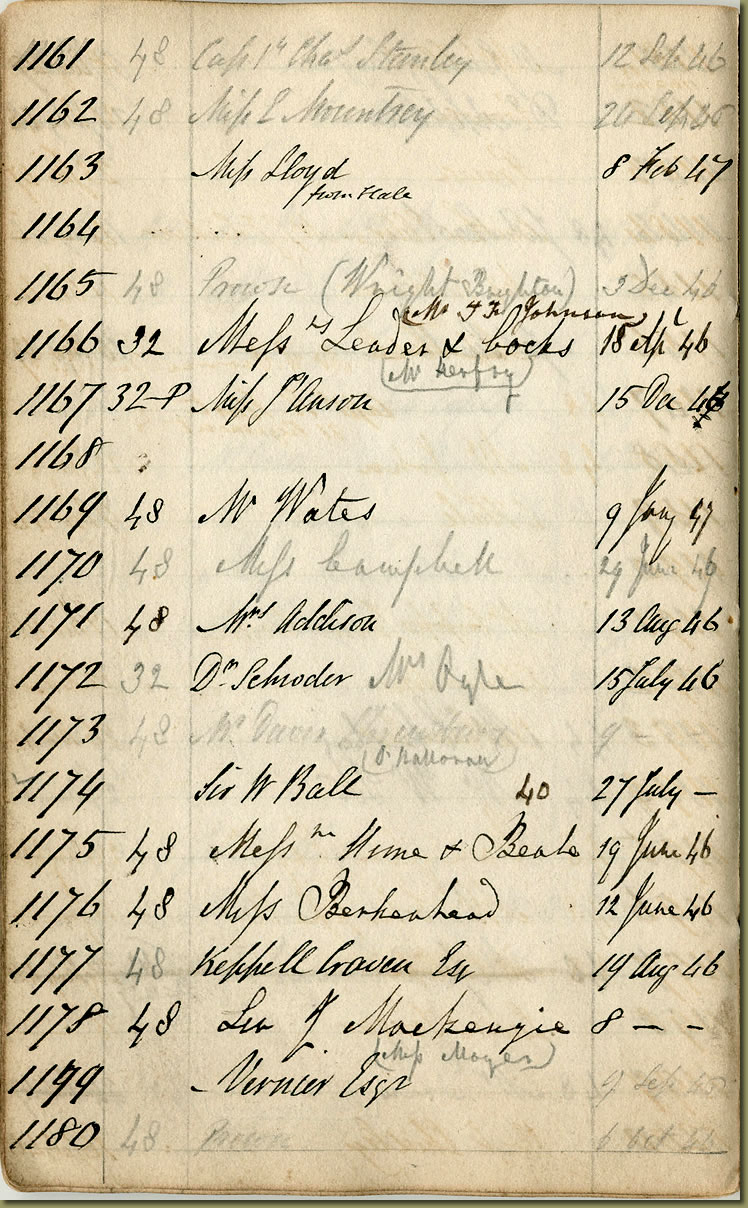 1161 48 Capt Chas Stanley 12 Feb 46
1162 48 Miss E Mountsey 26 Sep 46
1163 Miss Lloyd 8 Feb 47
from Hale
1164
1165 48 Prowse (Wright Brighton) 3 Dec 46
(Mr F H Johnson)
1166 32 Messrs Leader & Cocks 18 Apl 46
1167 32-P Miss J'Anson 15 Dec
1168
1169 48 Mr Wates 9 Jany 47
1170 48 Miss Campbell 29 June 46
1171 48 Mrs Addison 13 Aug 46
1172 32 Dr Schroder Mrs Pyle 15 July 46
1173 48 Mr Davis Shrewsbury 9 -
1174 Sir W Ball 40 27 July -
1175 48 Messrs Hime & Beale 19 June 46
1176 48 Miss Berkenhead 12 June 46
1177 48 Keppell Craven Esq 19 Aug 46
1178 48 Sir J Mackenzie 8 - -
(Miss Moyes)
1199 Vernier Esqr 9 Sep
1180 48 6 Oct 46